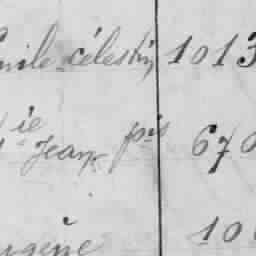 mile célestin 1013
ie Jean pis 670
ugène 10